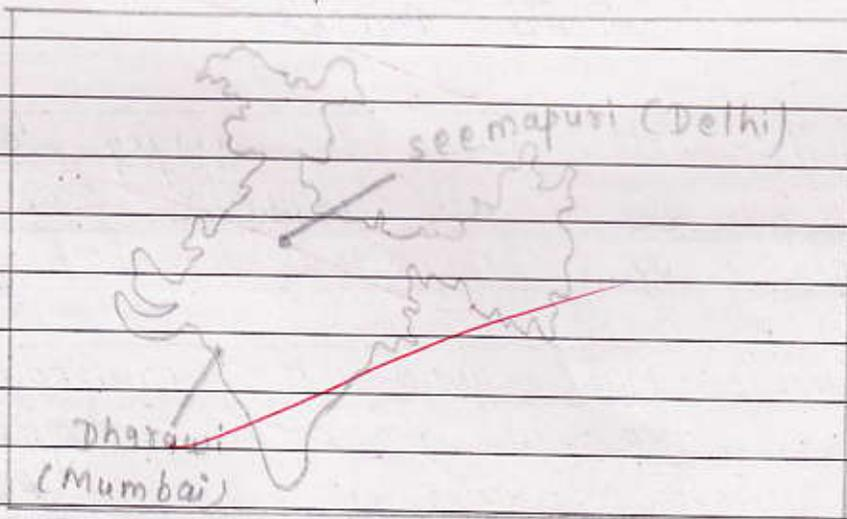 seemapuri (Delhi)
Dharavi
(Mumbai)